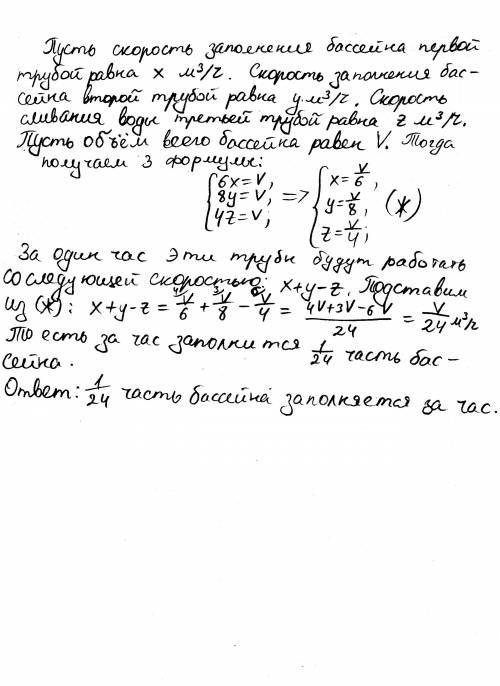 Пусть скорость заполнения бассейна первой
трубой равна x м³/г. Скорость заполнения бас-
сейна второй трубой равна y м³/г. Скорость
сливания воды третьей трубой равна z м³/г.
Пусть объём всего бассейна равен V. Тогда
получаем 3 формулы:
{6x=V, 8y=V, 4z=V; => {x=V/6, y=V/8, z=V/4; (*)
За один час эти трубы будут работать
со следующей скоростью: x+y-z. Подставим
из (*): x+y-z = ⁴⁾V/6 + ³⁾V/8 - ⁶⁾V/4 = (4V+3V-6V)/24 = V/24 м³/г
То есть за час заполнится 1/24 часть бас-
сейна.
Ответ: 1/24 часть бассейна заполняется за час.